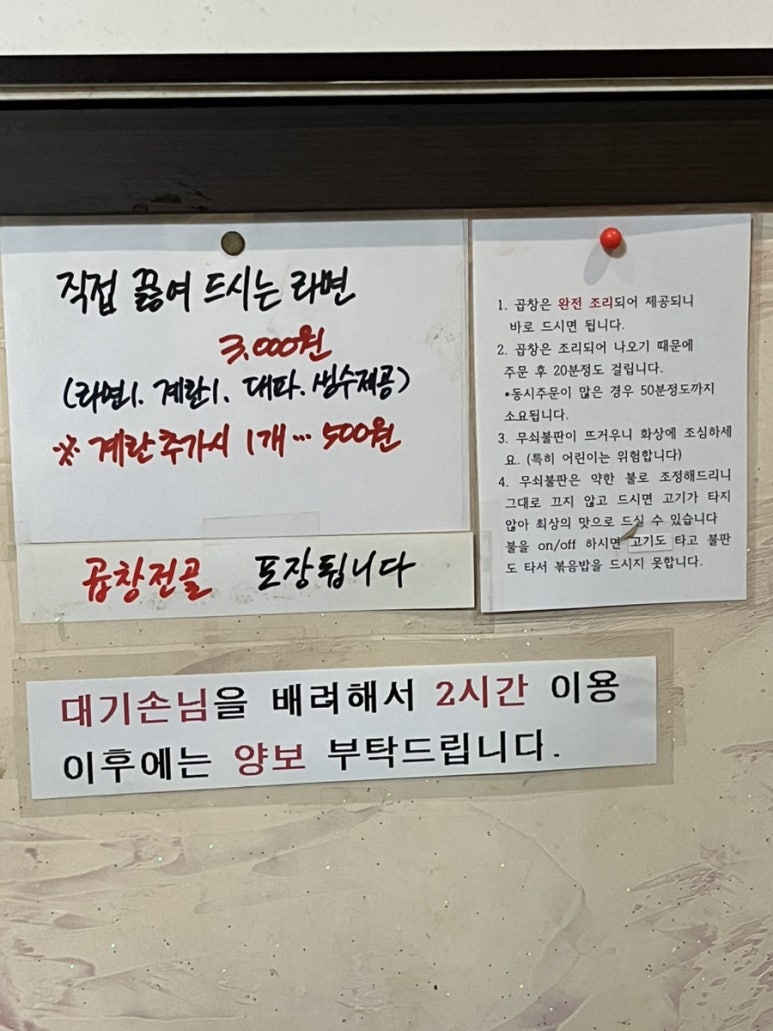 직접 끓여 드시는 라면
3,000원
(라면1. 계란1. 대파. 생수제공)
※ 계란추가시 1개 … 500원
곱창전골 포장됩니다
1. 곱창은 완전 조리되어 제공되니
바로 드시면 됩니다.
2. 곱창은 조리되어 나오기 때문에
주문 후 20분정도 걸립니다.
•동시주문이 많은 경우 50분정도까지
소요됩니다.
3. 무쇠불판이 뜨거우니 화상에 조심하세
요. (특히 어린이는 위험합니다)
4. 무쇠불판은 약한 불로 조정해드리니
그대로 끄지 않고 드시면 고기가 타지
않아 최상의 맛으로 드실 수 있습니다
불을 on/off 하시면 고기도 타고 불판
도 타서 볶음밥을 드시지 못합니다.
대기손님을 배려해서 2시간 이용
이후에는 양보 부탁드립니다.